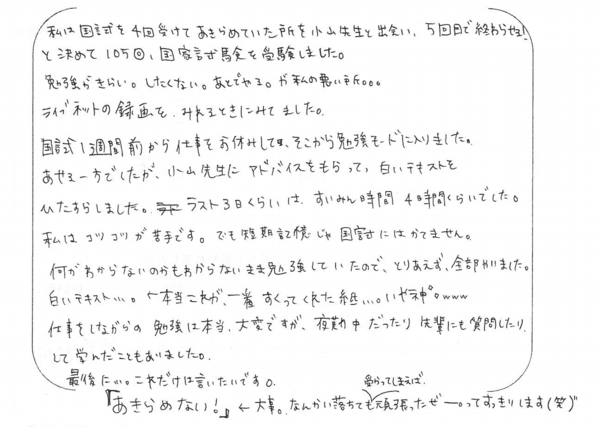 私は国試を4回受けてあきらめていた所を小山先生と出会い、5回目で終わらせる!
と決めて105回、国家試験を受験しました。
勉強がきらい。したくない。あとでやる。が私の悪い所。。。
ライブネットの録画を、みれるときにみてました。
国試1週間前から仕事をお休みして、そこから勉強モードに入りました。
あせる一方でしたが、小山先生にアドバイスをもらって、白いテキストを
ひたすらしました。ラスト3日くらいは、すいみん時間4時間くらいでした。
私はコツコツが苦手です。でも短期記憶じゃ国試にはかてません。
何がわからないのかもわからないまま勉強していたので、とりあえず、全部やりました。
白いテキスト…。←本当これが、一番すくってくれた紙…。いや神。www
仕事をしながらの勉強は本当、大変ですが、夜勤中だったり先輩にも質問したり、
して学んだこともありました。
最後に…。これだけは言いたいです。
受かってしまえば、
『あきらめない!』←大事。なんかい落ちても頑張ったぜーってすっきりします(笑)